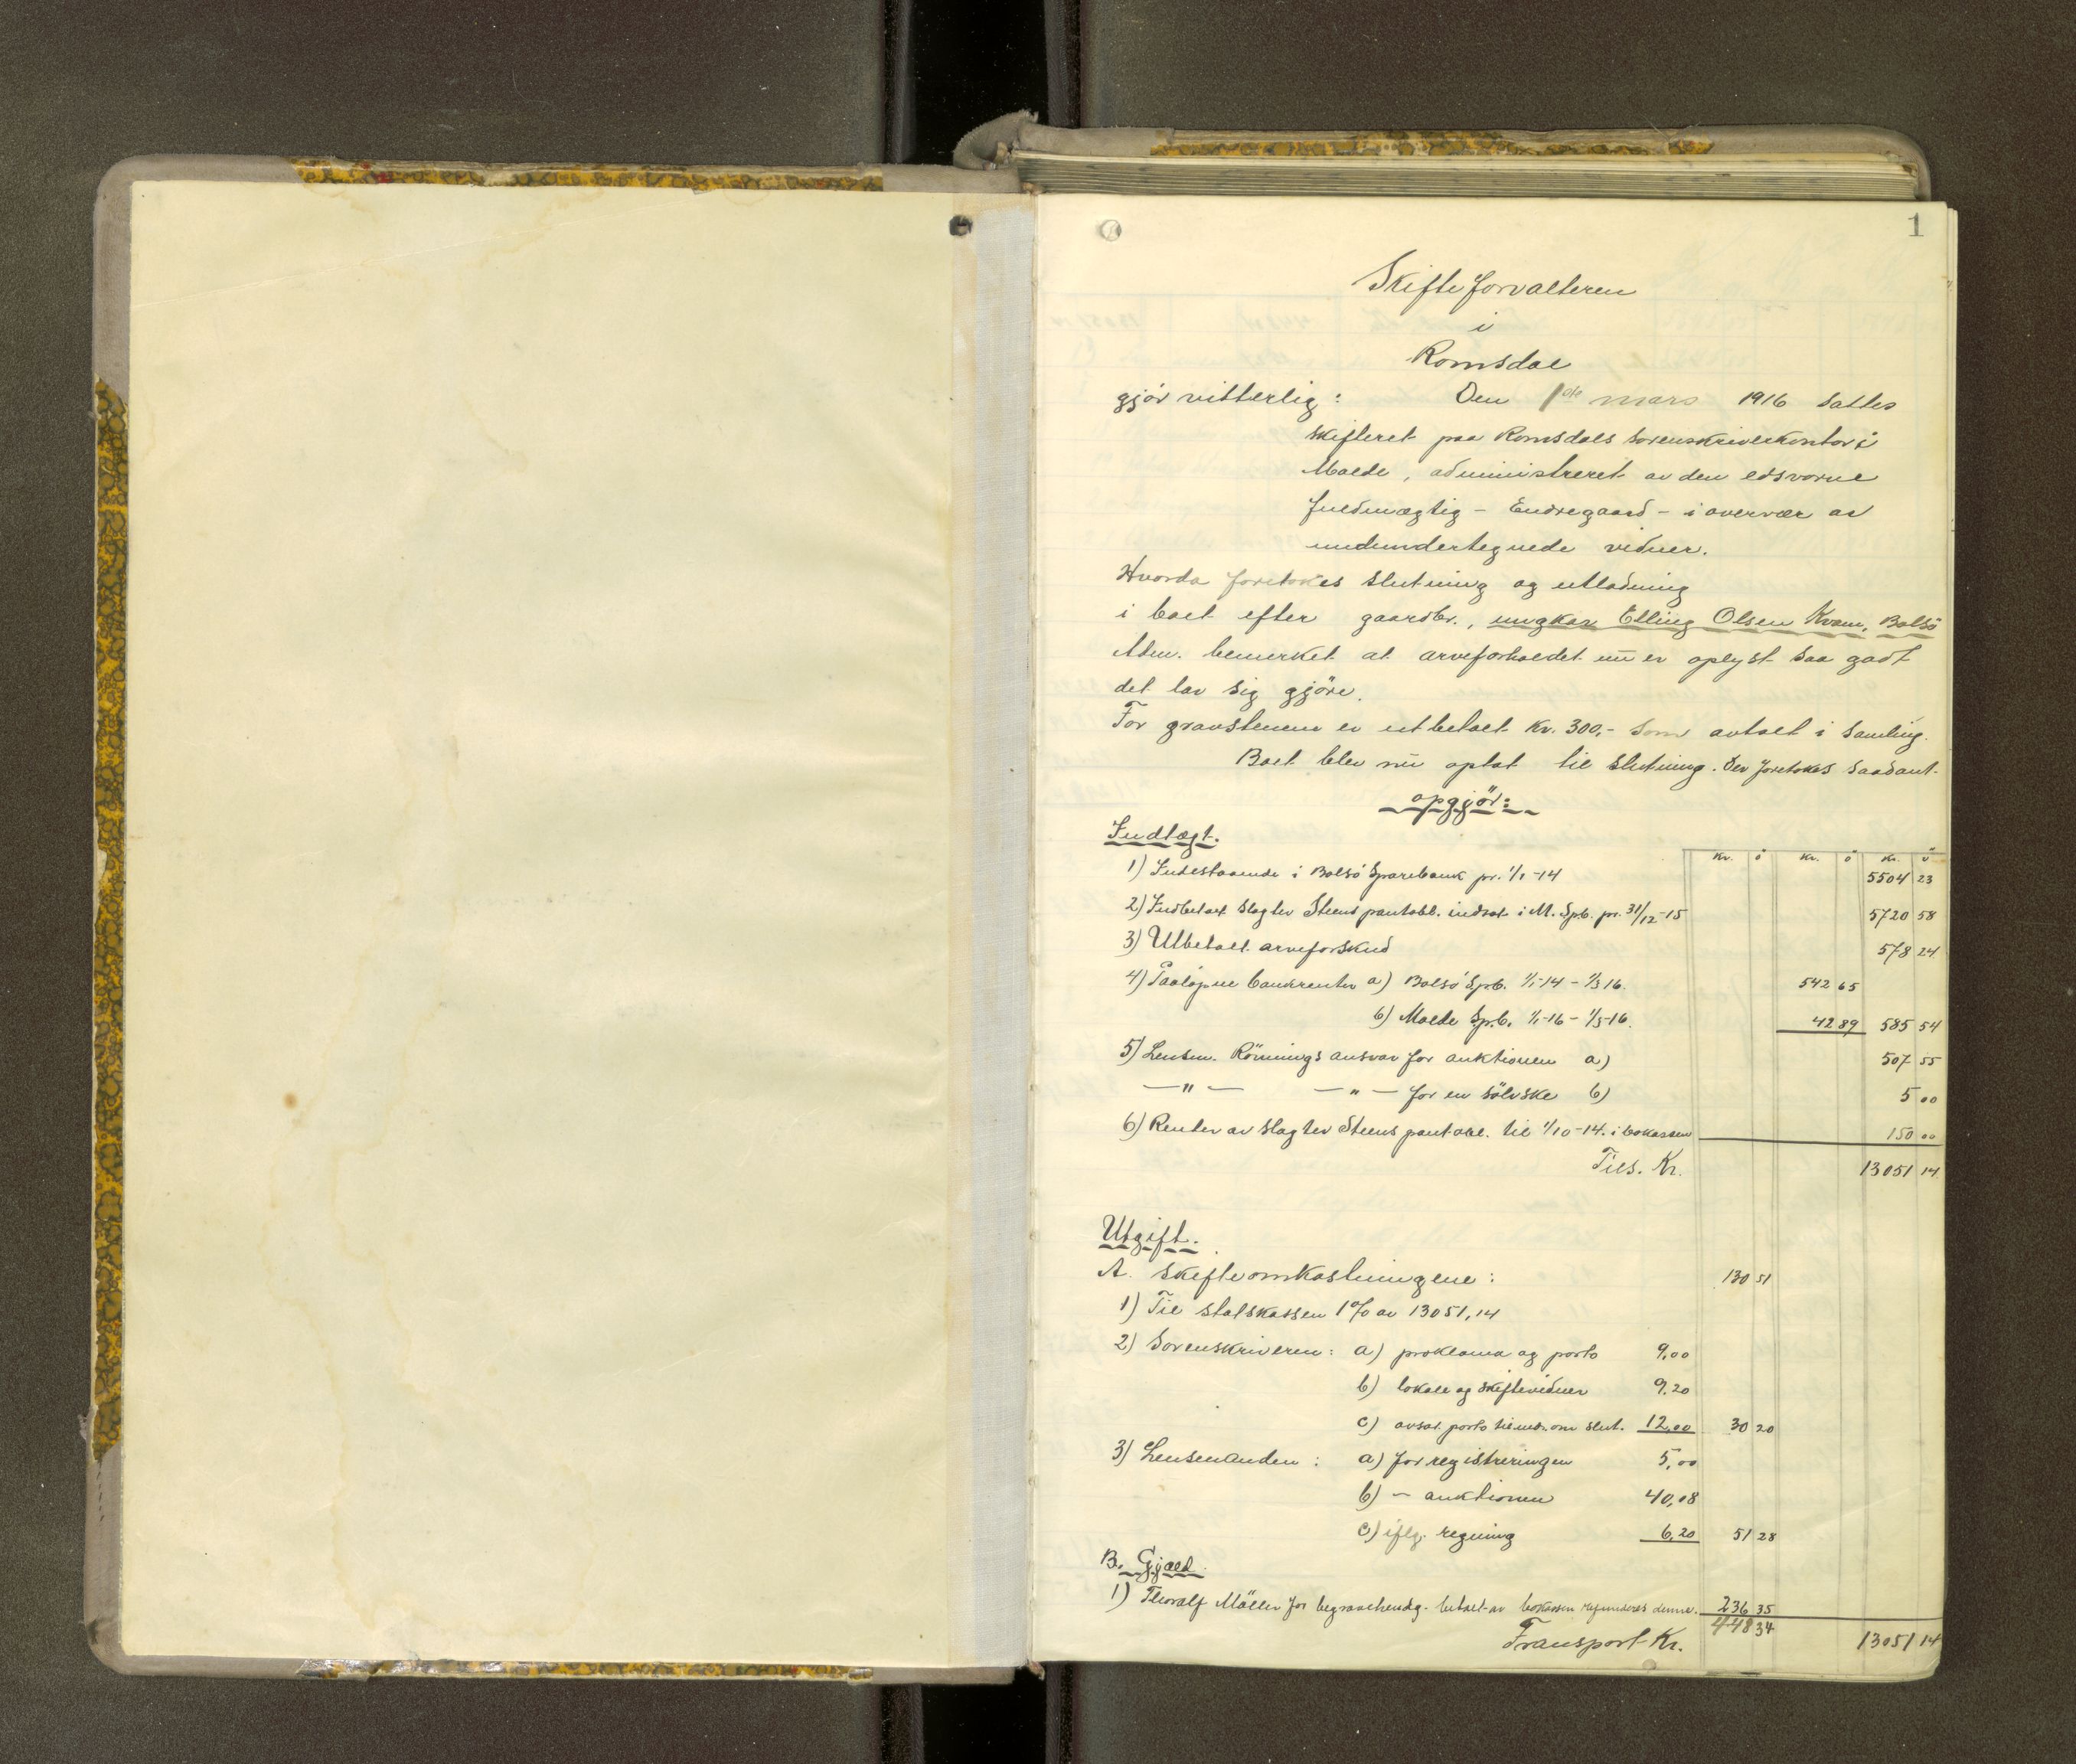 1
Skifteforvalteren
i
Romsdal
gjör vitterlig: Den 1ste mars 1916 sattes
skifteret paa Romsdals sorenskriverkontor i
Molde, administreret av den edsvorne
fuldmægtig - Endregaard - i overvær av
undertegnede vidner.
Hvorda foretokes slutning og utlodning
i boet efter gaardbr., ungkar Elling Olsen Kvam, Bolsö
Adm. bemerket at arveforholdet nu er oplyst saa godt
det lar sig gjöre.
For gravstenene er utbetalt kr. 300,- som avtalt i samling.
Boet blev nu optat til slutning. Der foretokes saadant
opgjör:
Indtægt.
Kr. ö Kr. ö Kr. ö
1) Indestaaende i Bolsö Sparebank pr. 1/1-14 5504 23
2) Indbetalt slagter Steens pantobl. indsat i M. Spb. pr. 31/12-15 5720 58
3) Utbetalt arveforskud 578 24
4) Paaløpne bankrenter a) Bolsö Spb. 1/1-14 - 1/3 16. 542 65
b) Molde Sp.b. 1/1-16 - 1/3-16. 42 89 585 54
5) Lensm. Rönnings ansvar for auktionen a) 507 55
-"- -"- for en sölvske b) 5 00
6) Renter av slagter Steens pantobl. til 1/10-14. i bokassen 150 00
Tils. Kr. 13051 14
Utgift.
A. Skifteomkostningene: 130 51
1) Til statskassen 1% av 13051,14
2) Sorenskriveren: a) proklama og porto 9,00
b) lokale og skiftevidner 9.20
c) avsat porto til medd. om slut. 12,00 30 20
3) Lensmanden: a) for registreringen 5,00
b) - auktionen 40,08
c) iflg. regning 6,20 51 28
B. Gjæld.
1) Thoralf Möller for begravelsesdg. betalt av bokassen refunderes denne. 236 35
448 34
Transport Kr. 13051 14